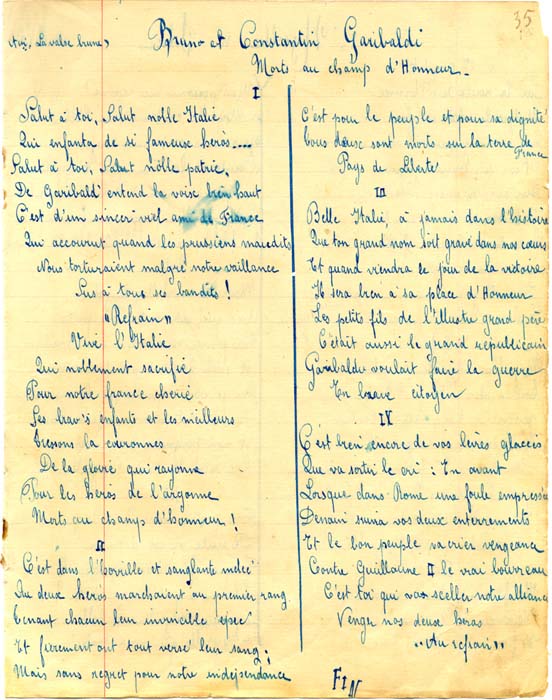 35
Air, La valse brune,
Bruno et Constantin Garibaldi
Morts au champ d'Honneur_
I
Salut à toi, Salut noble Italie
Qui enfanta de si fameux héros....
Salut à toi, Salut noble patrie,
De Garibaldi entend la voix bien haut
C'est d'un sincer' vieil ami de France
Qui accourut quand les prussiens maudits
Nous torturaient malgré notre vaillance
Sus à tous ses bandits !
"Refrain"
Vive l'Italie
Qui noblement sacrifié
Pour notre france cherie
Ses brav's enfants et les meilleurs
Tressons la couronnes
De la gloire qui rayonne
Pour les héros de l'argonne
Morts au champ d'honneur !
II
C'est dans l'horrible et sanglante melée
Qu deux héros marchaient au premier rang
Tenant chacun leur invincible épée
Et fierement ont tout versé leur sang ;
Mais sans regret pour notre indépendance
C'est pour le peuple et pour sa dignité
Tous deux sont morts sur la terre de France
Pays de Liberté
III
Belle Italie, à jamais dans l'histoire
Que ton grand nom soit gravé dans nos cœurs
Et quand viendra le jour de la victoire
Il sera bien à sa place d'Honneur
Les petits fils de l'illustre grand père
C'était aussi le grand republicain
Garibaldi voulait faire la guerre
En brave citoyen
IV
C'est bien encore de vos levres glacées
Que va sortir le cri : En avant
Lorsque dans Rome une foule empressée
Demain suivra vos deux enterrements
Et le bon peuple va crier vengeance
Contre Guillaume II le vrai bourreau
C'est toi qui vas sceller notre alliance
Venge nos deux héros
"Au refrain"
Fin